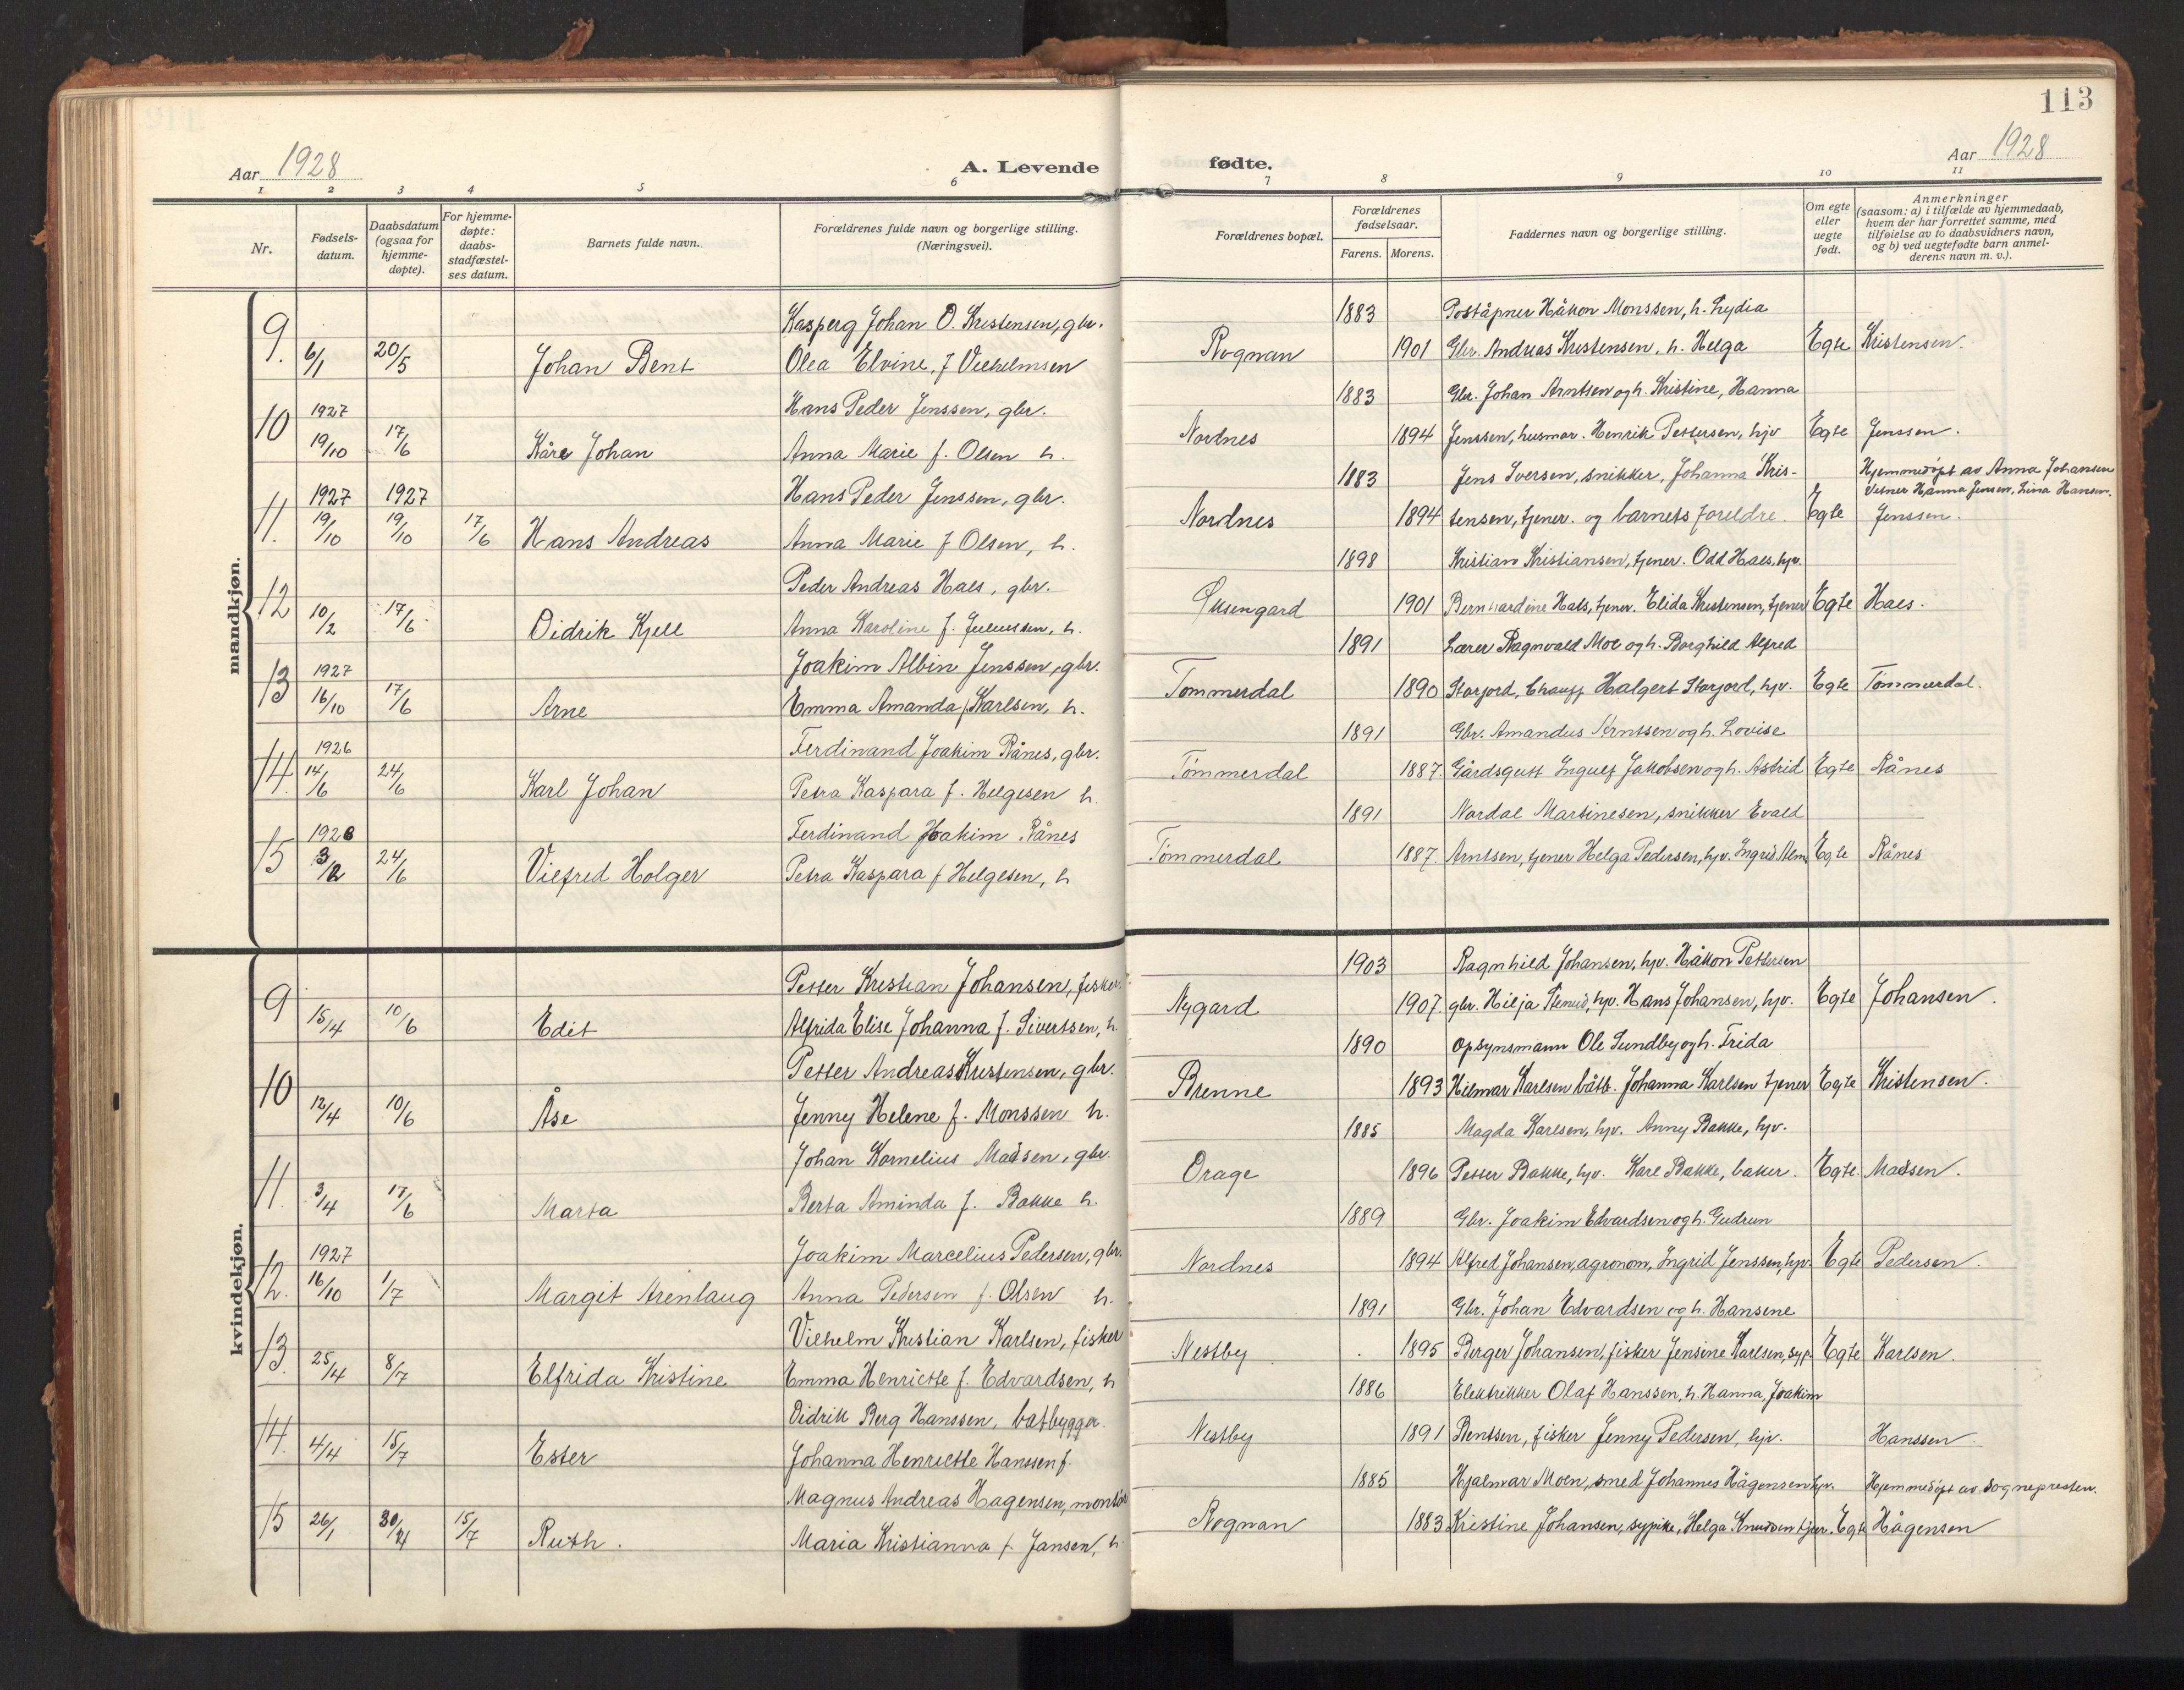 113
Aar 1928 A. Levende fødte. Aar 1928
1 2 3 4 5 6 7 8 9 10 11
Nr. Fødsels-datum. Daabsdatum (ogsaa for hjemme-døpte). For hjemme-døpte: daabs-stadfæstel-ses datum. Barnets fulde navn. Forældrenes fulde navn og borgerlige stilling. (Næringsvei). Forældrenes bopæl. Forældrenes fødselsaar. Farens. Morens. Faddernes navn og borgerlige stilling. Om egte eller uegte født. Anmerkninger (saasom: a) i tilfælde av hjemmedaab, hvem der har forrettet samme, med tilføielse av to daabsvidners navn, og b) ved uegtefødte barn anmel-derens navn m. v.).
mandkjøn.
Kasperg Johan O. Kristensen, gbr. 1883 Poståpner Håkon Monssen, h. Lydia
9. 6/1 20/5 Johan Bent Olea Elvine, f Vilhelmsen Rognan 1901 Gbr. Andreas Kristensen, h. Helga Egte Kristensen.
1927 Hans Peder Jenssen, gbr. 1883 Gbr. Johan Arntsen og h. Kristine, Hanna
10 19/10 17/6 Kåre Johan Anna Marie f. Olsen h. Nordnes 1894 Jenssen, husmor. Henrik Pettersen, hjv Egte Jenssen.
1927 1927 Hans Peder Jenssen, gbr. 1883 Jens Iversen, snikker, Johanna Kris- Hjemmedøpt av Anna Johansen
Vitner Hanna Jensen, Lina Hansen.
11. 19/10 19/10 17/6 Hans Andreas Anna Marie f Olsen, h. Nordnes 1894 tensen, tjener. og barnets foreldre. Egte Jenssen.
Peder Andreas Hals, gbr. 1898 Kristian Kristiansen, tjener. Odd Hals, hjv.
12 10/2 17/6 Didrik Kjell Anna Karoline f. Juliussen, h. Øksengard 1901 Bernhardine Hals, tjener. Elida Kristensen, tjener Egte Hals.
1927 Joakim Albin Jenssen, gbr. 1891 Lærer Ragnvald Moe og h. Borghild Alfred
13 16/10 17/6 Arne Emma Amanda f. Karlsen, h. Tømmerdal 1890 Storjord, Chauff Halgert Storjord, hjv. Egte Tømmerdal.
1926 Ferdinand Joakim Rånes, gbr. 1891 Gbr. Amandus Arntsen og h. Lovise
14. 14/6 24/6 Karl Johan Petra Kaspara f. Helgesen h. Tømmerdal 1887. Gårdsgutt Ingulf Jakobsen og h. Astrid Egte Rånes
1928 Ferdinand Joakim Rånes 1891 Nordal Martinesen, snikker Evald
15 3/2 24/6 Vilfred Holger Petra Kaspara f Helgesen, h Tømmerdal 1887. Arntsen, tjener Helga Pedersen, hjv. Ingrid Egte Rånes
kvindekjøn.
Petter Kristian Johansen, fisker 1903 Ragnhild Johansen, hjv. Håkon Pettersen
9 15/4 10/6 Edit Alfrida Elise Johanna f. Sivertsen, h. Nygard 1907. gbr. Hilja hjv. Hans Johansen, hjv. Egte Johansen.
Petter Andreas Kristensen, gbr. 1890 Opsynsmann Ole Sundby og h. Frida
10 12/4 10/6 Åse Jenny Helene f. Monssen h. Brenne 1893 Hilmar Karlsen båtb. Johanna Karlsen tjener Egte Kristensen.
Johan Kornelius Madsen, gbr. 1885 Magda Karlsen, hjv. Anny Bakke, hjv.
11. 3/4 17/6 Marta Berta Aminda f. Bakke h. Drage 1896 Petter Bakke, hjv. Karl Bakke, baker. Egte. Madsen.
1927 Joakim Marcelius Pedersen, gbr. 1889 Gbr. Joakim Edvardsen og h. Gudrun
12. 16/10 1/7 Margit Arenlaug Anna Pedersen f. Olsen h. Nordnes 1894 Alfred Johansen, agronom, Ingrid Jenssen, hjv. Egte Pedersen.
Vilhelm Kristian Karlsen, fisker 1891 Gbr. Johan Edvardsen og h. Hansine
13. 25/4 8/7 Elfrida Kristine Emma Henriette f. Edvardsen, h Nestby 1895 Birger Johansen, fisker Jensine Karlsen, syp. Egte Karlsen.
Didrik Berg Hanssen, båtbygger. 1886 Elektrikker Olaf Hanssen, h. Hanna, Joakim
14. 4/4 15/7 Ester Johanna Henriette Hanssen f. Nestby 1891 Bentsen, fisker Jenny Pedersen, hjv. Hanssen.
Magnus Andreas Hagensen, montør 1885 Hjalmar Moen, smed Johannes Hågensen hjv. Hjemmedøpt av Sognepresten.
15 26/1 30/4 15/7 Ruth. Maria Kristianna f. Jansen, h. Rognan 1883 Kristine Johansen, sypike, Helga Knudsen tjener. Egte Hågensen